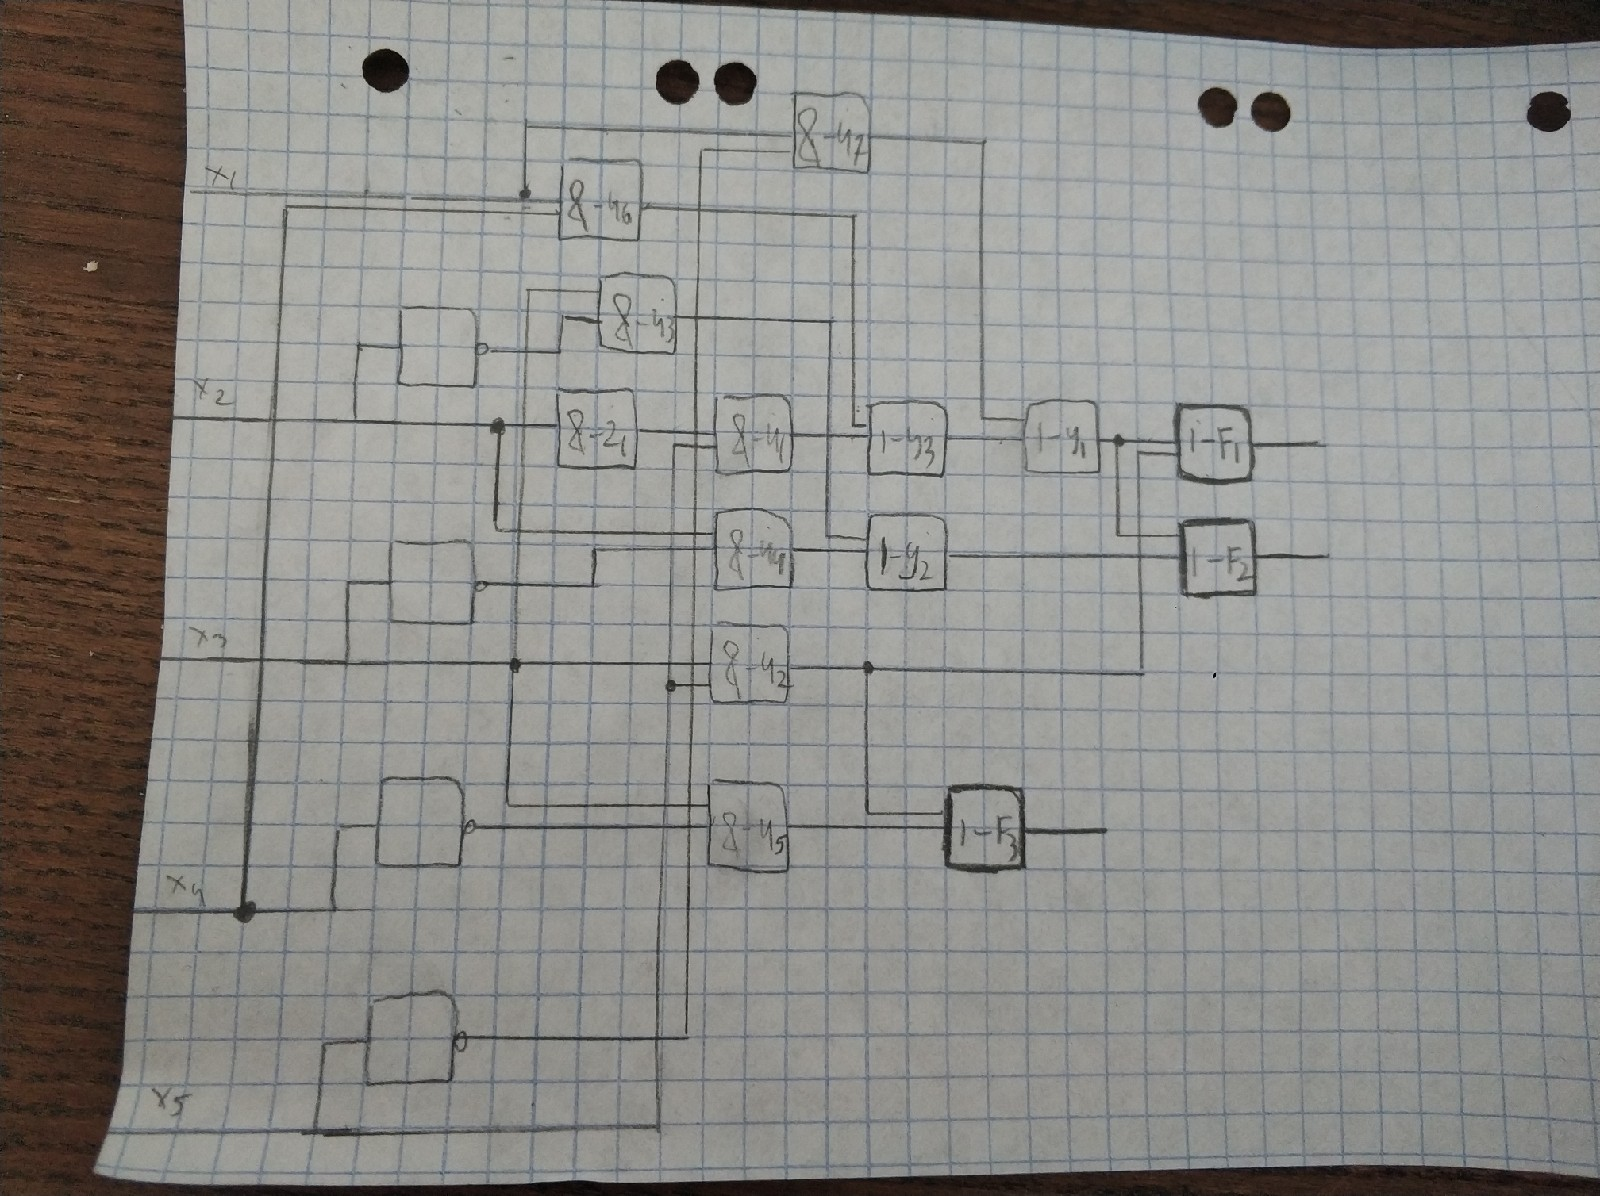 &-u7
x1
&-u6
&-u3
x2
&-z1 &-u1 1-y3 1-y1 1-F1
&-u4 1-y2 1-F2
x3
&-u2
&-u5 1-F3
x4
x5